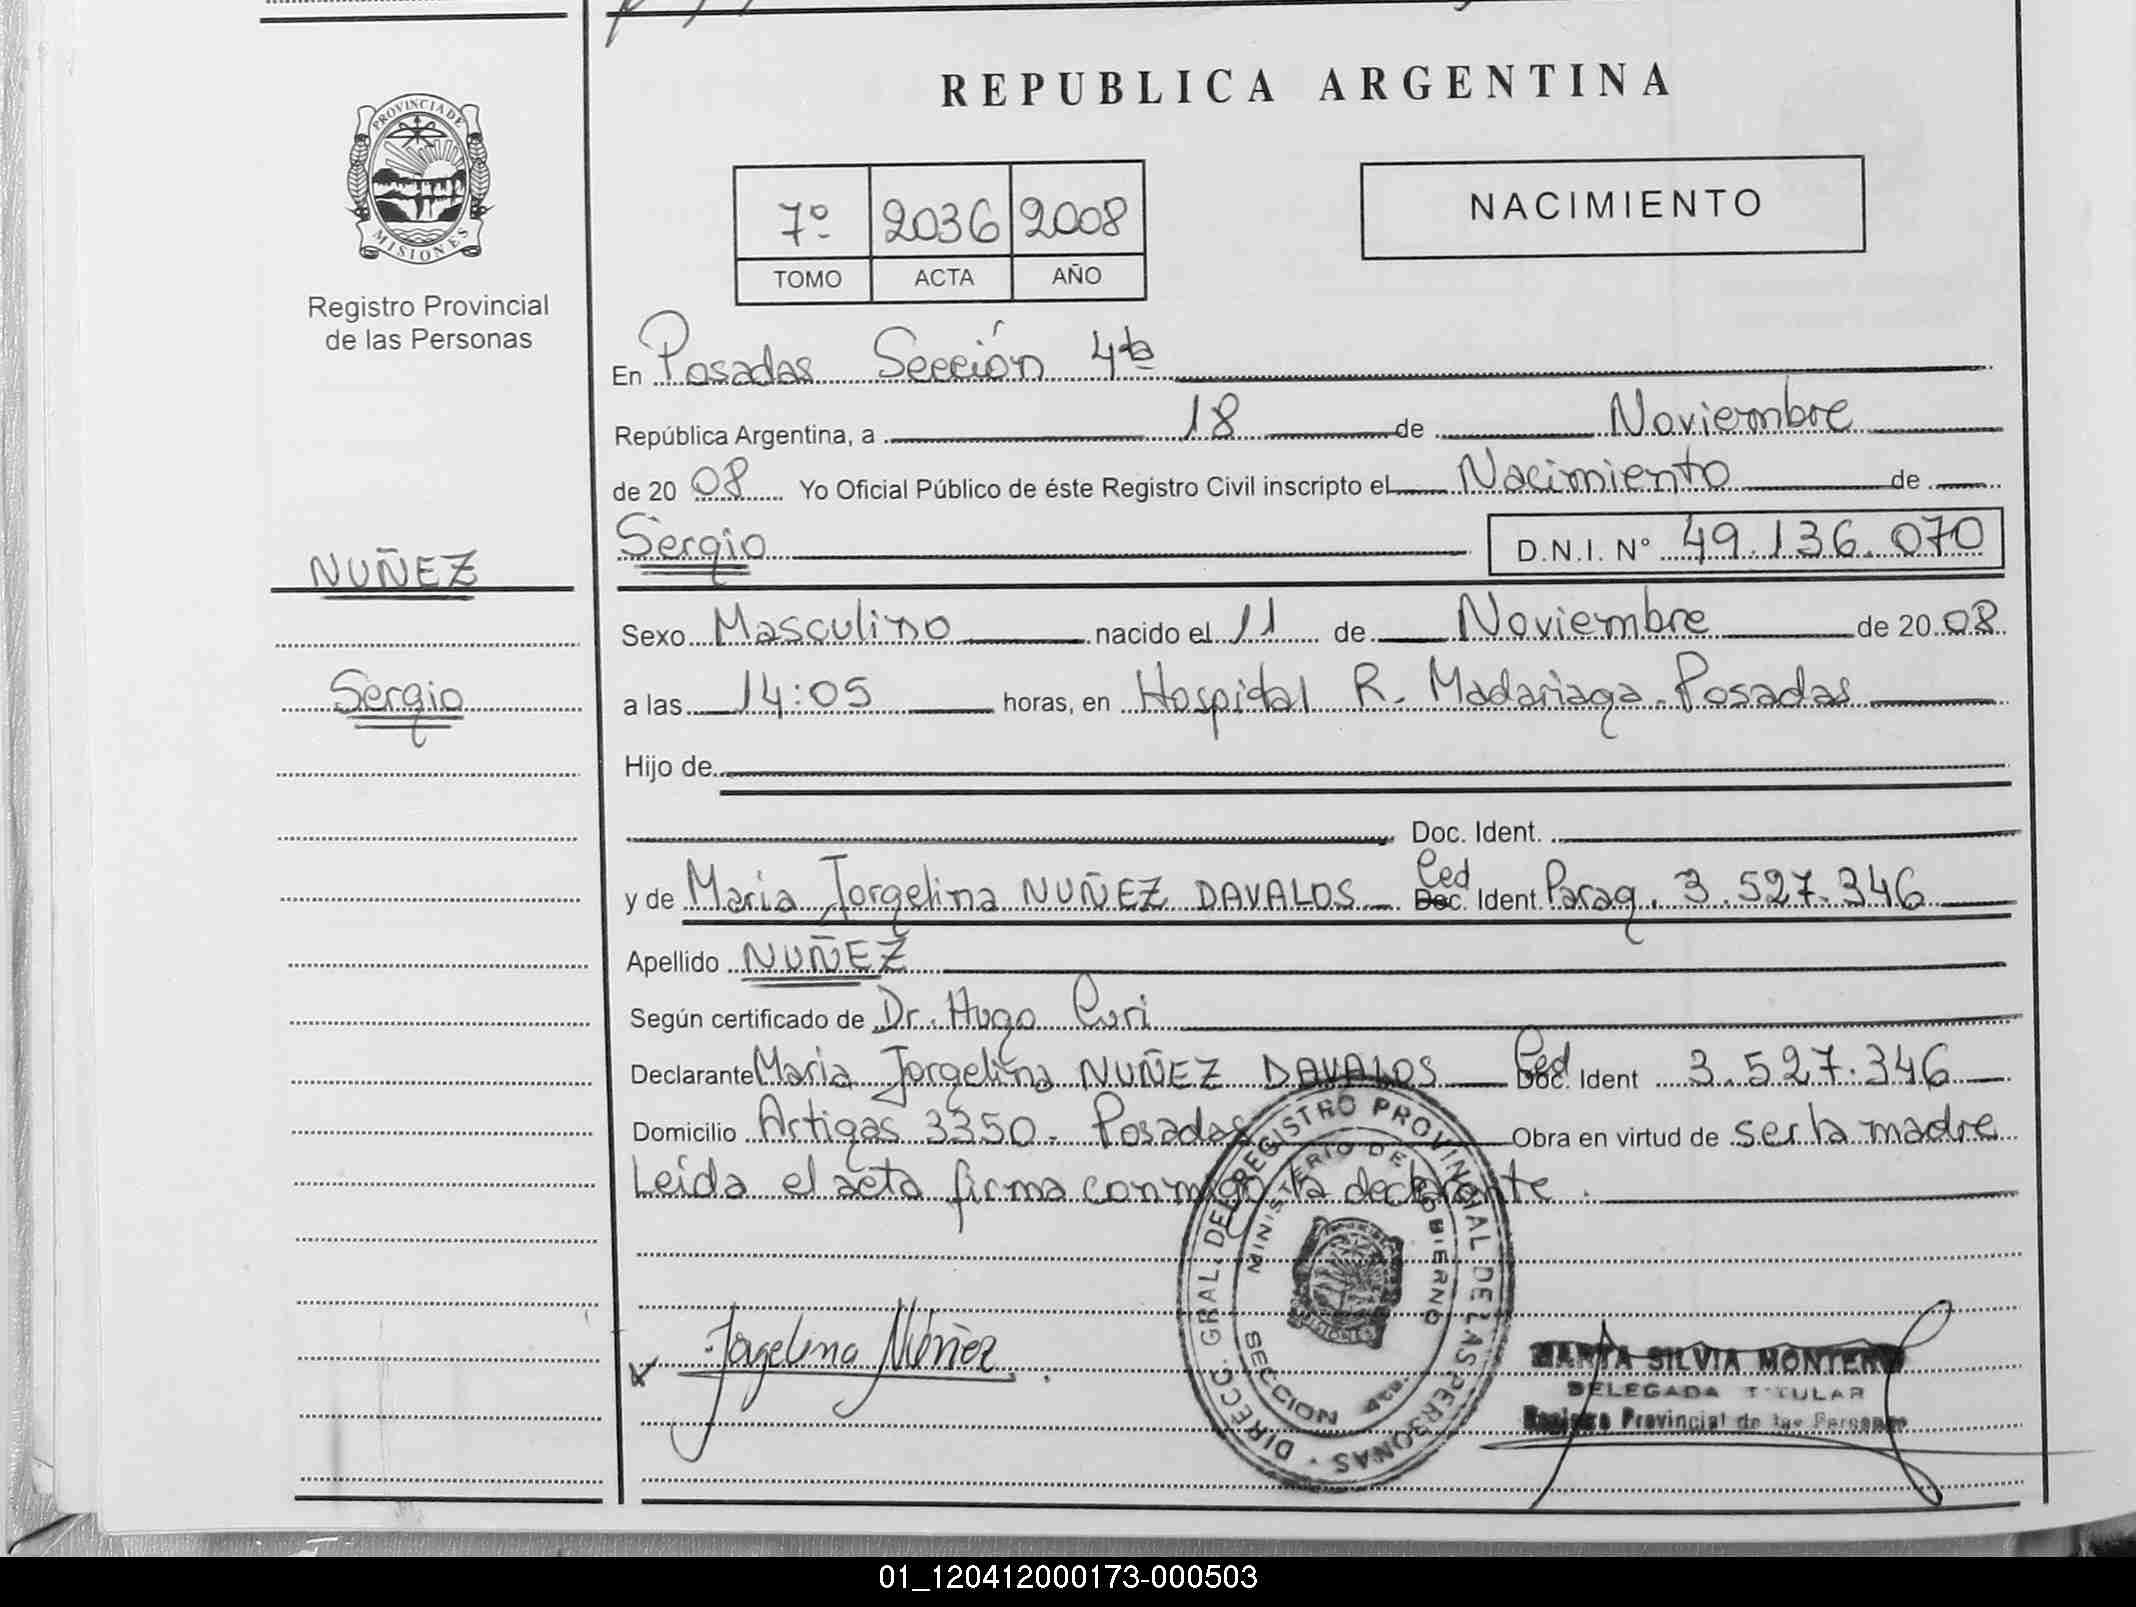 REPUBLICA ARGENTINA
PROVINCIA DE
MISIONES
Registro Provincial
de las Personas
7º 2036 2008
TOMO ACTA AÑO
NACIMIENTO
En Posadas Sección 4ta
República Argentina, a 18 de Noviembre
de 2008 Yo Oficial Público de éste Registro Civil inscripto el Nacimiento de
Sergio D.N.I. Nº 49.136.070
NUÑEZ
Sexo Masculino nacido el 11 de Noviembre de 2008
Sergio
a las 14:05 horas, en Hospital R. Madariaga - Posadas
Hijo de
Doc. Ident.
y de Maria Jorgelina NUÑEZ DAVALOS Ced Doc. Ident. Parag. 3.527.346
Apellido NUÑEZ
Según certificado de Dr. Hugo Curi
Declarante Maria Jorgelina NUÑEZ DAVALOS Ced Doc. Ident 3.527.346
Domicilio Artigas 3350 - Posadas Obra en virtud de ser la madre
Leída el acta firma conmigo la declarante.
DIRECC. GRAL. DEL REGISTRO PROVINCIAL DE LAS PERSONAS
MINISTERIO DE GOBIERNO
SECCION 4ta.
MISIONES
Jorgelina Núñez
MARTA SILVIA MONTERO
DELEGADA TITULAR
Registro Provincial de las Personas
01_120412000173-000503